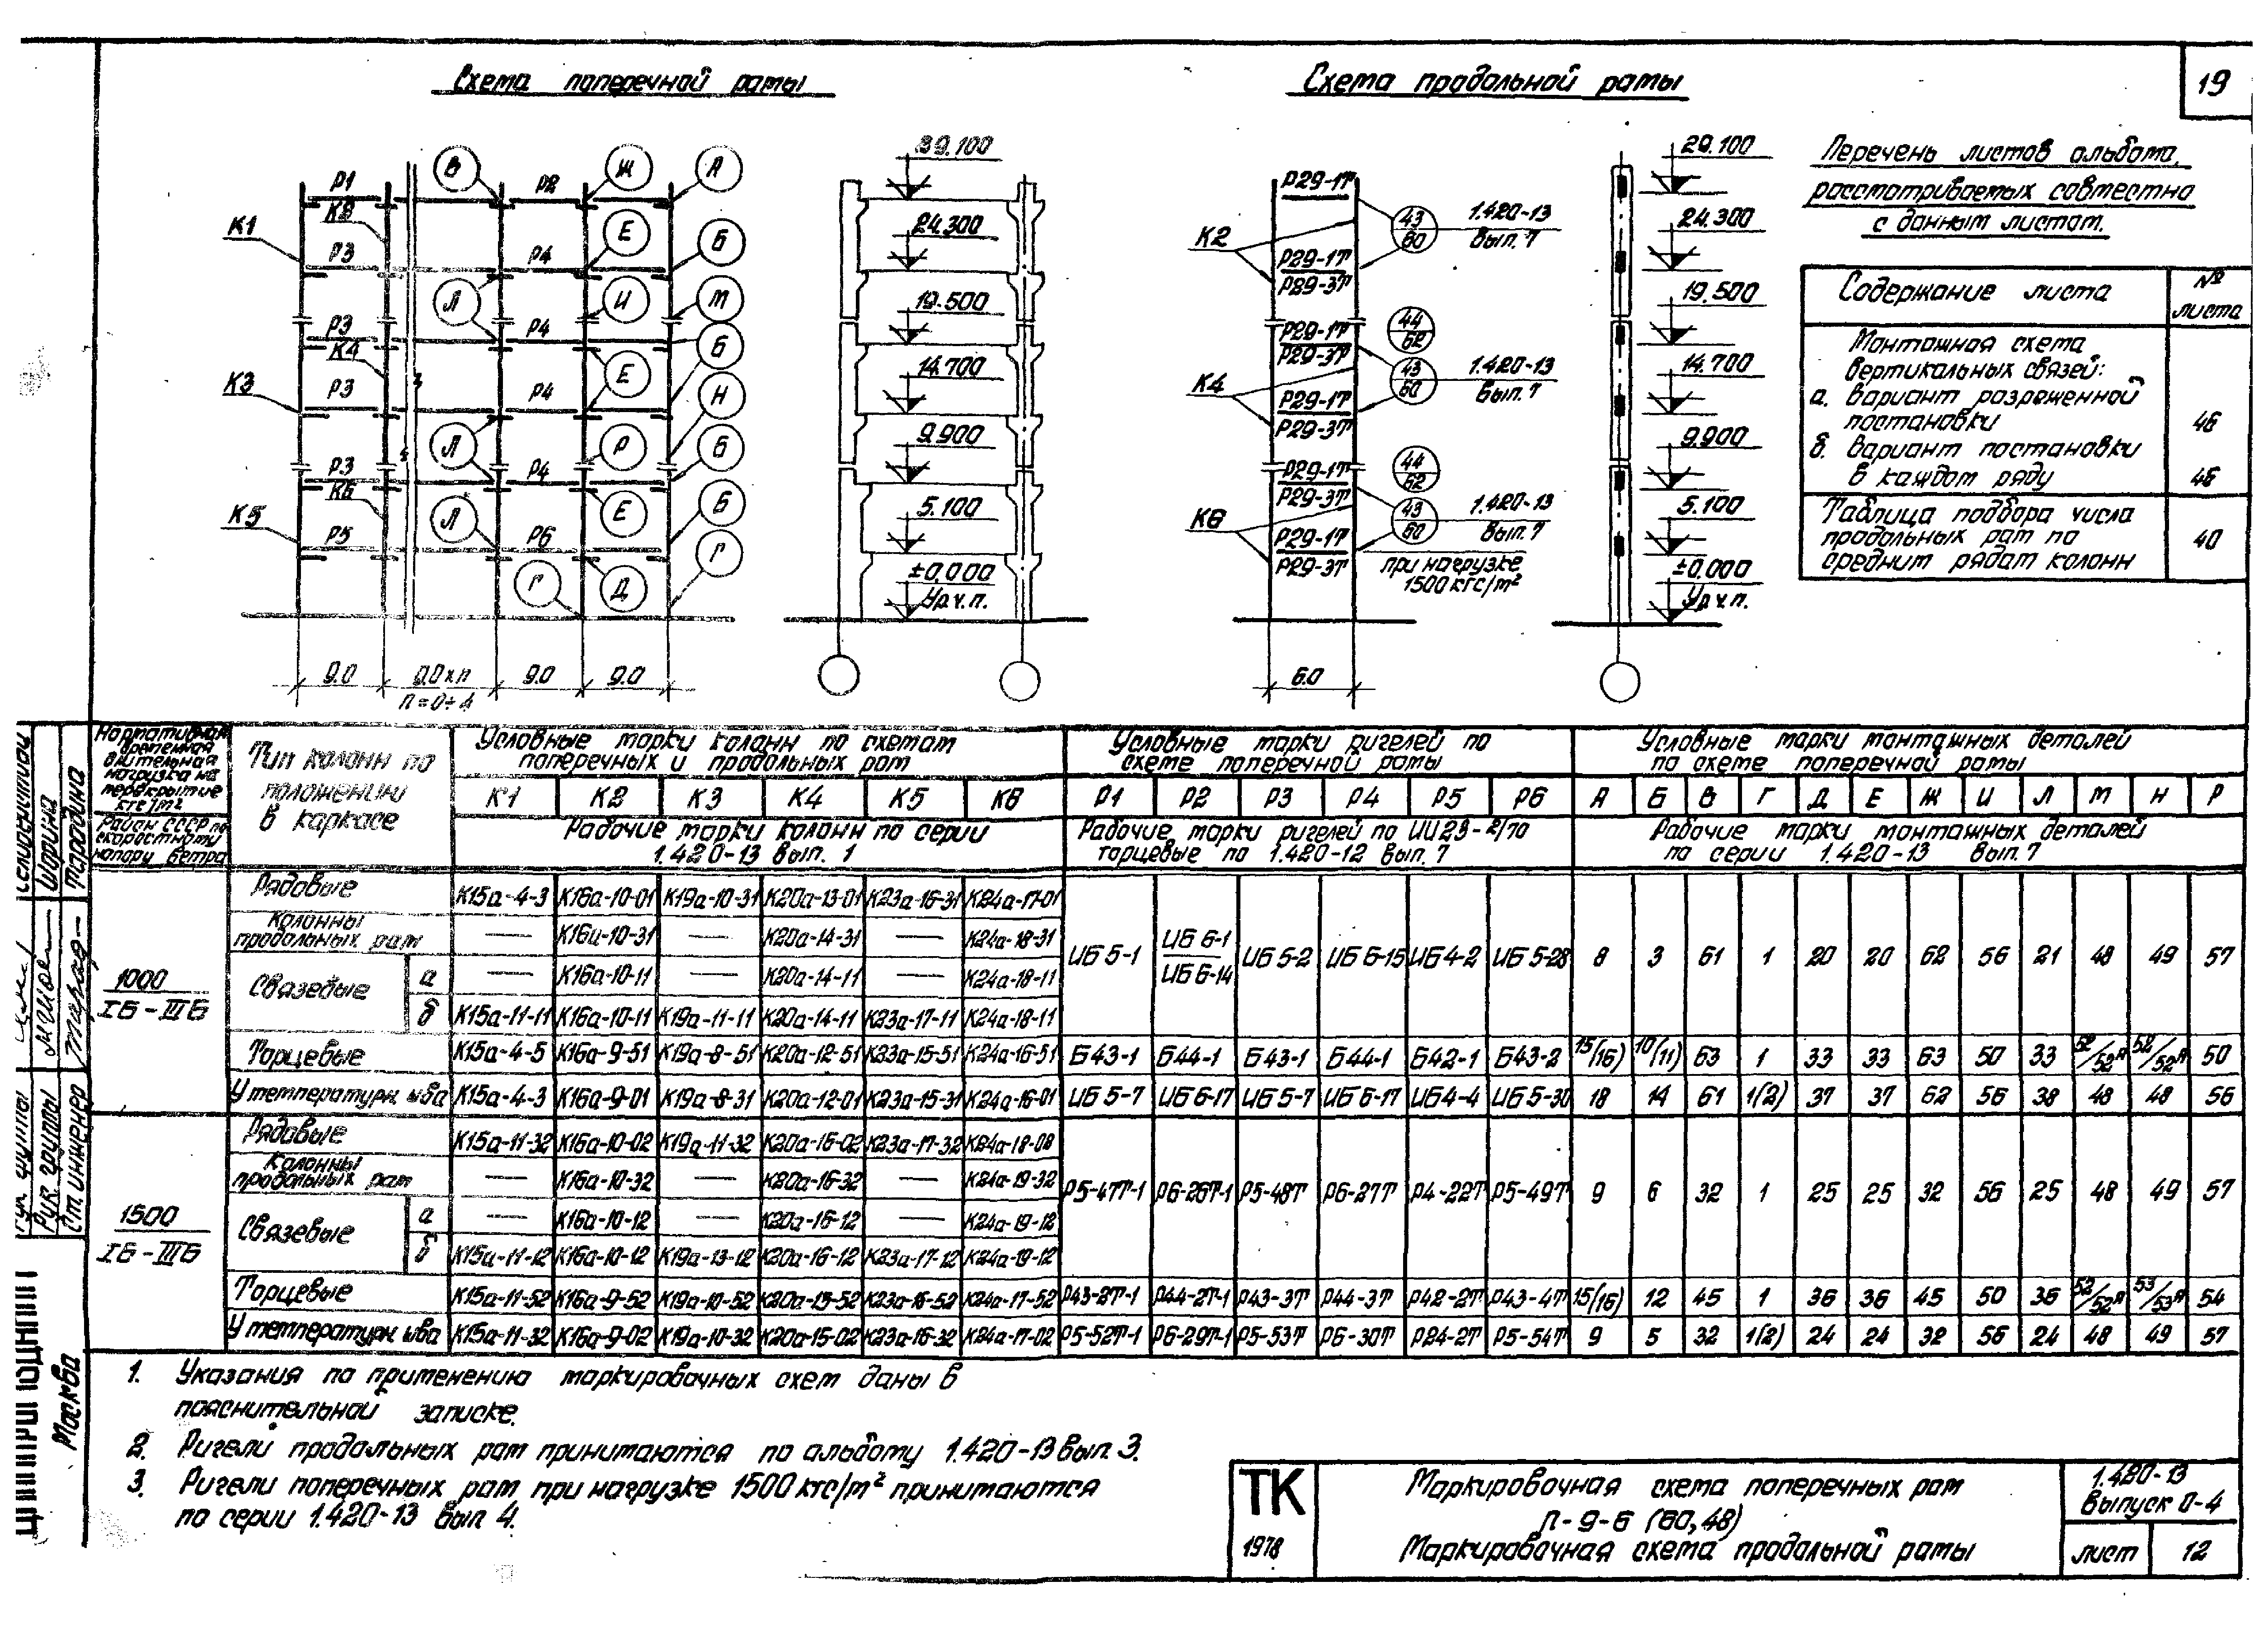 19
Схема поперечной рамы
Схема продольной рамы
Р1 К2 В Р2 Ж А
К1
Р3 Р4 Е Б
Л И М
Р3 К4 Р4 Б
К3 Р3 Р4 Е Н
Л Р Б
Р3 К6 Р4
К5 Л Е Б
Р5 Р6 Г Д Г
9.0 9.0хп 9.0 9.0
п=0÷4
39.100
24.300
19.500
14.700
9.900
5.100
±0.000
Ур.ч.п.
Р29-1Т
К2 43/60 1.420-13 вып. 7
Р29-1Т
Р29-3Т
Р29-1Т 44/62
Р29-3Т
К4 43/60 1.420-13 вып. 7
Р29-1Т
Р29-3Т
Р29-1Т 44/62
Р29-3Т
К6 43/60 1.420-13 вып. 7
Р29-1Т
Р29-3Т
при нагрузке
1500 кгс/м²
6.0
29.100
24.300
19.500
14.700
9.900
5.100
±0.000
Ур.ч.п.
Перечень листов альбома,
рассматриваемых совместно
с данным листом.
Содержание листа № листа
Монтажная схема
вертикальных связей:
а. вариант разреженной
постановки 46
б. вариант постановки
в каждом ряду 46
Таблица подбора числа
продольных рам по 40
средним рядам колонн
Нормативная временная длительная нагрузка на перекрытие кгс/м²
Район СССР по скоростному напору ветра
Тип колонн по положению в каркасе
Условные марки колонн по схемам поперечных и продольных рам
Условные марки ригелей по схеме поперечной рамы
Условные марки монтажных деталей по схеме поперечной рамы
К1 К2 К3 К4 К5 К6 Р1 Р2 Р3 Р4 Р5 Р6 А Б В Г Д Е Ж И Л М Н Р
Рабочие марки колонн по серии 1.420-13 вып. 1
Рабочие марки ригелей по ИИ23-2/70 торцевые по 1.420-12 вып. 7
Рабочие марки монтажных деталей по серии 1.420-13 вып. 7
1000
IБ-IIIБ
Рядовые К15а-4-3 К16а-10-01 К19а-10-31 К20а-13-01 К23а-16-31 К24а-17-01
Колонны продольных рам — К16а-10-31 — К20а-14-31 — К24а-18-31
ИБ 5-1 ИБ 6-1/ИБ 6-14 ИБ 5-2 ИБ 6-15 ИБ 4-2 ИБ 5-28 8 3 61 1 20 20 62 56 21 48 49 57
Связевые а — К16а-10-11 — К20а-14-11 — К24а-18-11
б К15а-11-11 К16а-10-11 К19а-11-11 К20а-14-11 К23а-17-11 К24а-18-11
Торцевые К15а-4-5 К16а-9-51 К19а-8-51 К20а-12-51 К23а-15-51 К24а-16-51 Б43-1 Б44-1 Б43-1 Б44-1 Б42-1 Б43-2 15/(16) 10/(11) 63 1 33 33 63 50 33 52/52А 52/52А 50
У температурн. шва К15а-4-3 К16а-9-01 К19а-8-31 К20а-12-01 К23а-15-31 К24а-16-01 ИБ 5-7 ИБ 6-17 ИБ 5-7 ИБ 6-17 ИБ 4-4 ИБ 5-30 18 14 61 1(2) 37 37 62 56 38 48 48 56
1500
IБ-IIIБ
Рядовые К15а-11-32 К16а-10-02 К19а-11-32 К20а-16-02 К23а-17-32 К24а-18-08
Колонны продольных рам — К16а-10-32 — К20а-16-32 — К24а-19-32
Р5-47Т-1 Р6-26Т-1 Р5-48Т Р6-27Т Р4-22Т Р5-49Т 9 6 32 1 25 25 32 56 25 48 49 57
Связевые а — К16а-10-12 — К20а-16-12 — К24а-19-12
б К15а-11-12 К16а-10-12 К19а-13-12 К20а-16-12 К23а-17-12 К24а-19-12
Торцевые К15а-11-52 К16а-9-52 К19а-10-52 К20а-15-52 К23а-16-52 К24а-17-52 Р43-2Т-1 Р44-2Т-1 Р43-3Т Р44-3Т Р42-2Т Р43-4Т 15/(16) 12 45 1 36 36 45 50 36 52/52А 53/53А 54
У температурн. шва К15а-11-32 К16а-9-02 К19а-10-32 К20а-15-02 К23а-16-32 К24а-17-02 Р5-52Т-1 Р6-29Т-1 Р5-53Т Р6-30Т Р24-2Т Р5-54Т 9 5 32 1(2) 24 24 32 56 24 48 49 57
1. Указания по применению маркировочных схем даны в
пояснительной записке.
2. Ригели продольных рам принимаются по альбому 1.420-13 вып. 3.
3. Ригели поперечных рам при нагрузке 1500 кгс/м² принимаются
по серии 1.420-13 вып 4.
ТК
1978
Маркировочная схема поперечных рам
П-9-6 (60,48)
Маркировочная схема продольной рамы
1.420-13
Выпуск 0-4
лист 12
Рук. группы
Ст. инженер
Шорина
Тарадина
Москва